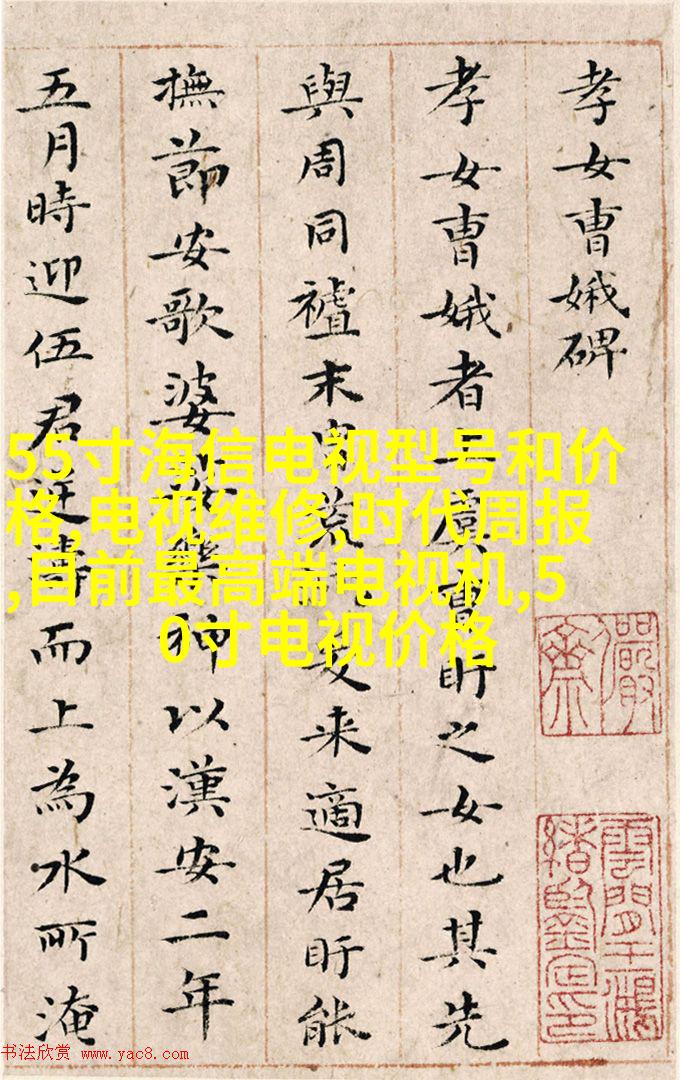 孝女曹娥碑
孝女曹娥者上虞曹盱之女也其先
與周同末荒來適居盱能
撫節安歌婆娑樂神以漢安二年
五月時迎伍君逆濤而上為水所淹
55寸海信电视型号和价
格,电视维修,时代周报
,目前最高端电视机,5
0寸电视价格
儼齋
雲間王鴻
緒鑒定印
书法欣赏 www.yac8.com